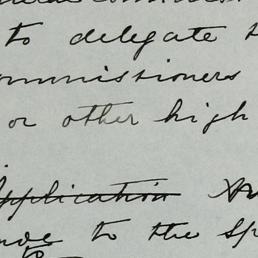 to delegate
ommissioners
or other high
application
to the sp
to